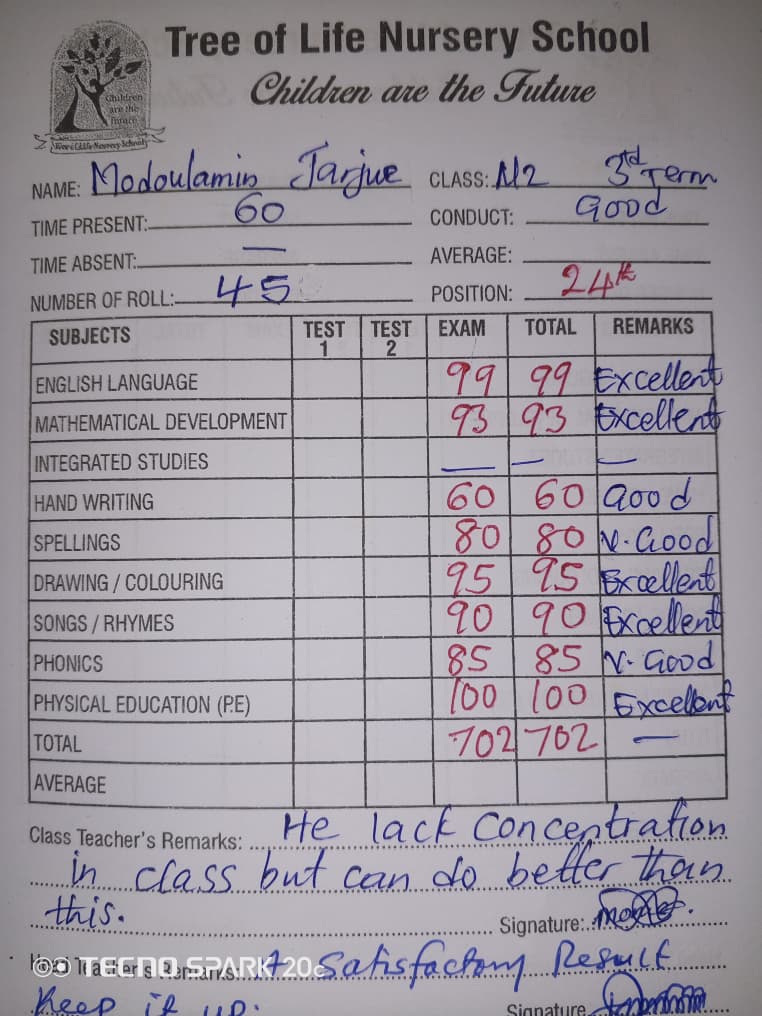 Tree of Life Nursery School
Children are the Future
Children
are the
Future
Tree of Life Nursery School
NAME: Modoulamin Jarjue CLASS: N2 3rd Term
TIME PRESENT: 60 CONDUCT: Good
TIME ABSENT: — AVERAGE:
NUMBER OF ROLL: 45 POSITION: 24th
SUBJECTS TEST 1 TEST 2 EXAM TOTAL REMARKS
ENGLISH LANGUAGE 99 99 Excellent
MATHEMATICAL DEVELOPMENT 93 93 Excellent
INTEGRATED STUDIES — — —
HAND WRITING 60 60 Good
SPELLINGS 80 80 V. Good
DRAWING / COLOURING 95 95 Excellent
SONGS / RHYMES 90 90 Excellent
PHONICS 85 85 V. Good
PHYSICAL EDUCATION (P.E) 100 100 Excellent
TOTAL 702 702 —
AVERAGE
Class Teacher's Remarks: He lack concentration
in class but can do better than
this. Signature:
Head Teacher's Remarks: A Satisfactory Result
TECNO SPARK 20C
Keep it up. Signature